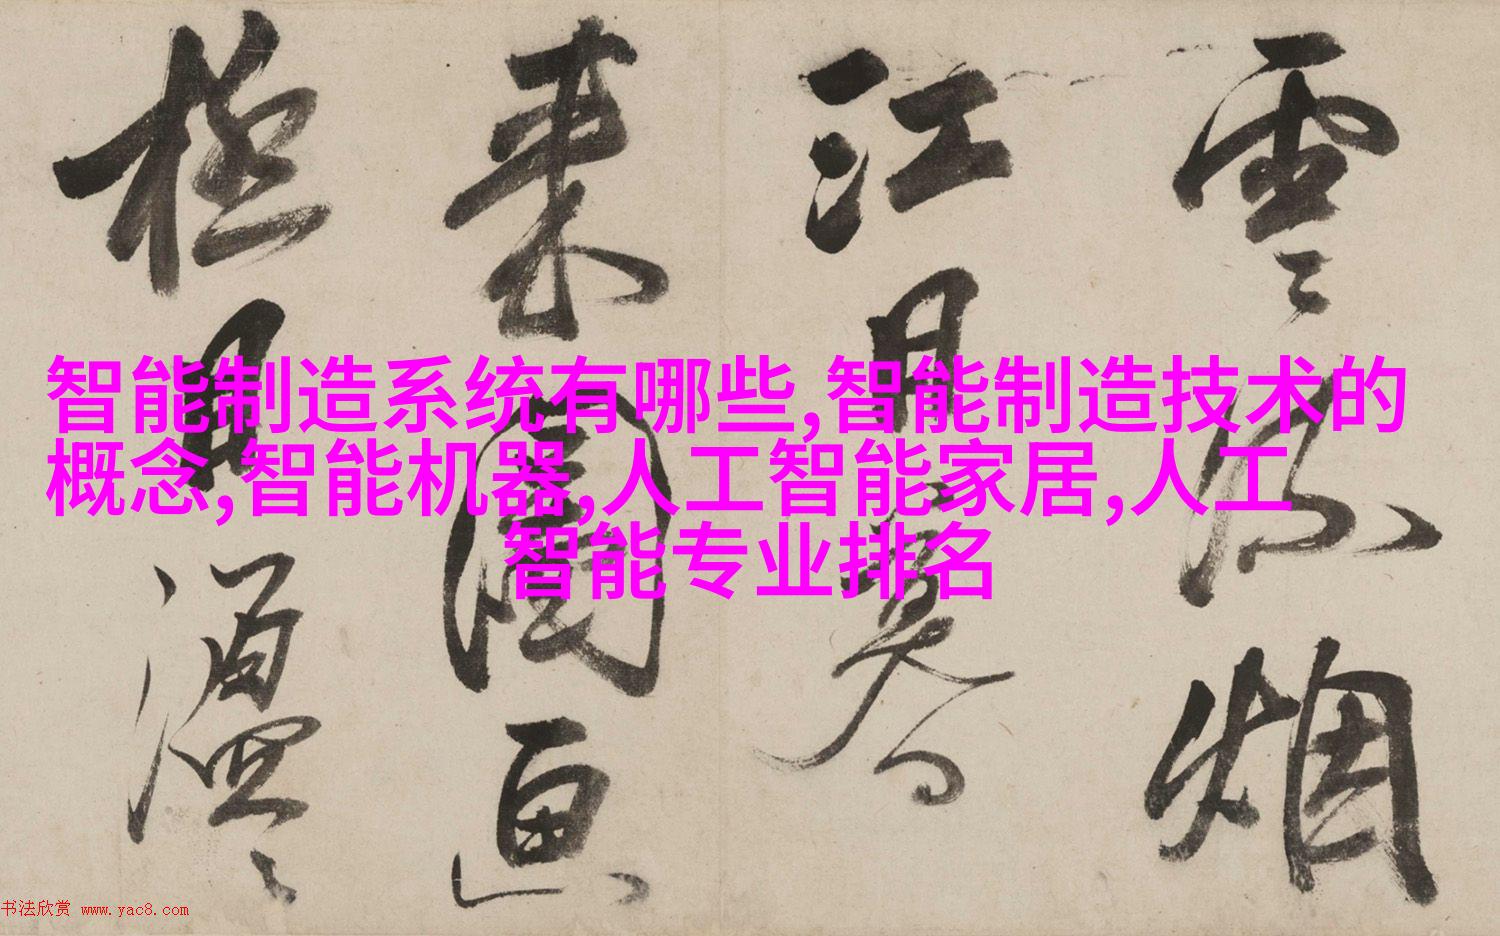 雲〻烟
江月
来圖画
極目
智能制造系统有哪些,智能制造技术的
概念,智能机器,人工智能家居,人工
智能专业排名
书法欣赏 www.yac8.com